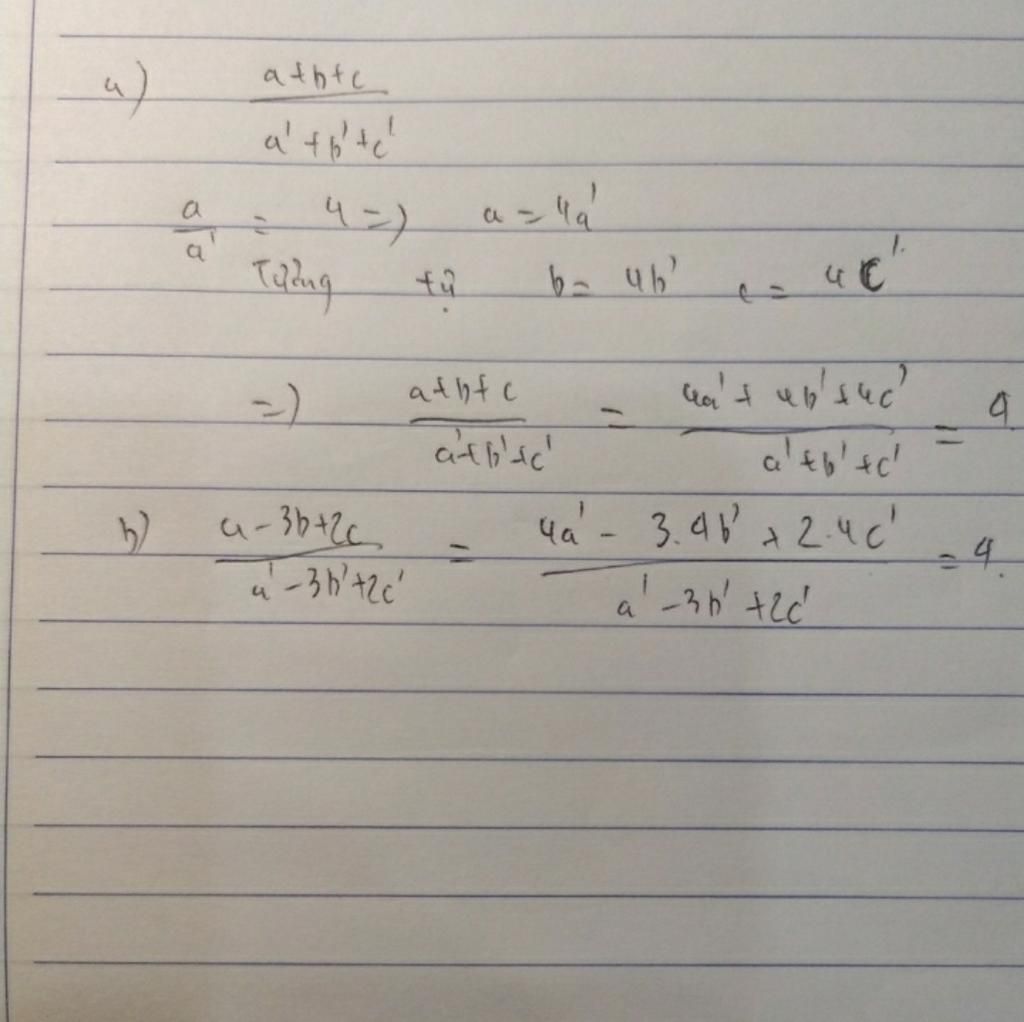 a) (a+b+c)/(a'+b'+c')
a/a' = 4 => a = 4a'
Tương tự b = 4b' c = 4c'
=> (a+b+c)/(a'+b'+c') = (4a'+4b'+4c')/(a'+b'+c') = 4.
b) (a-3b+2c)/(a'-3b'+2c') = (4a' - 3.4b' + 2.4c')/(a'-3b'+2c') = 4.